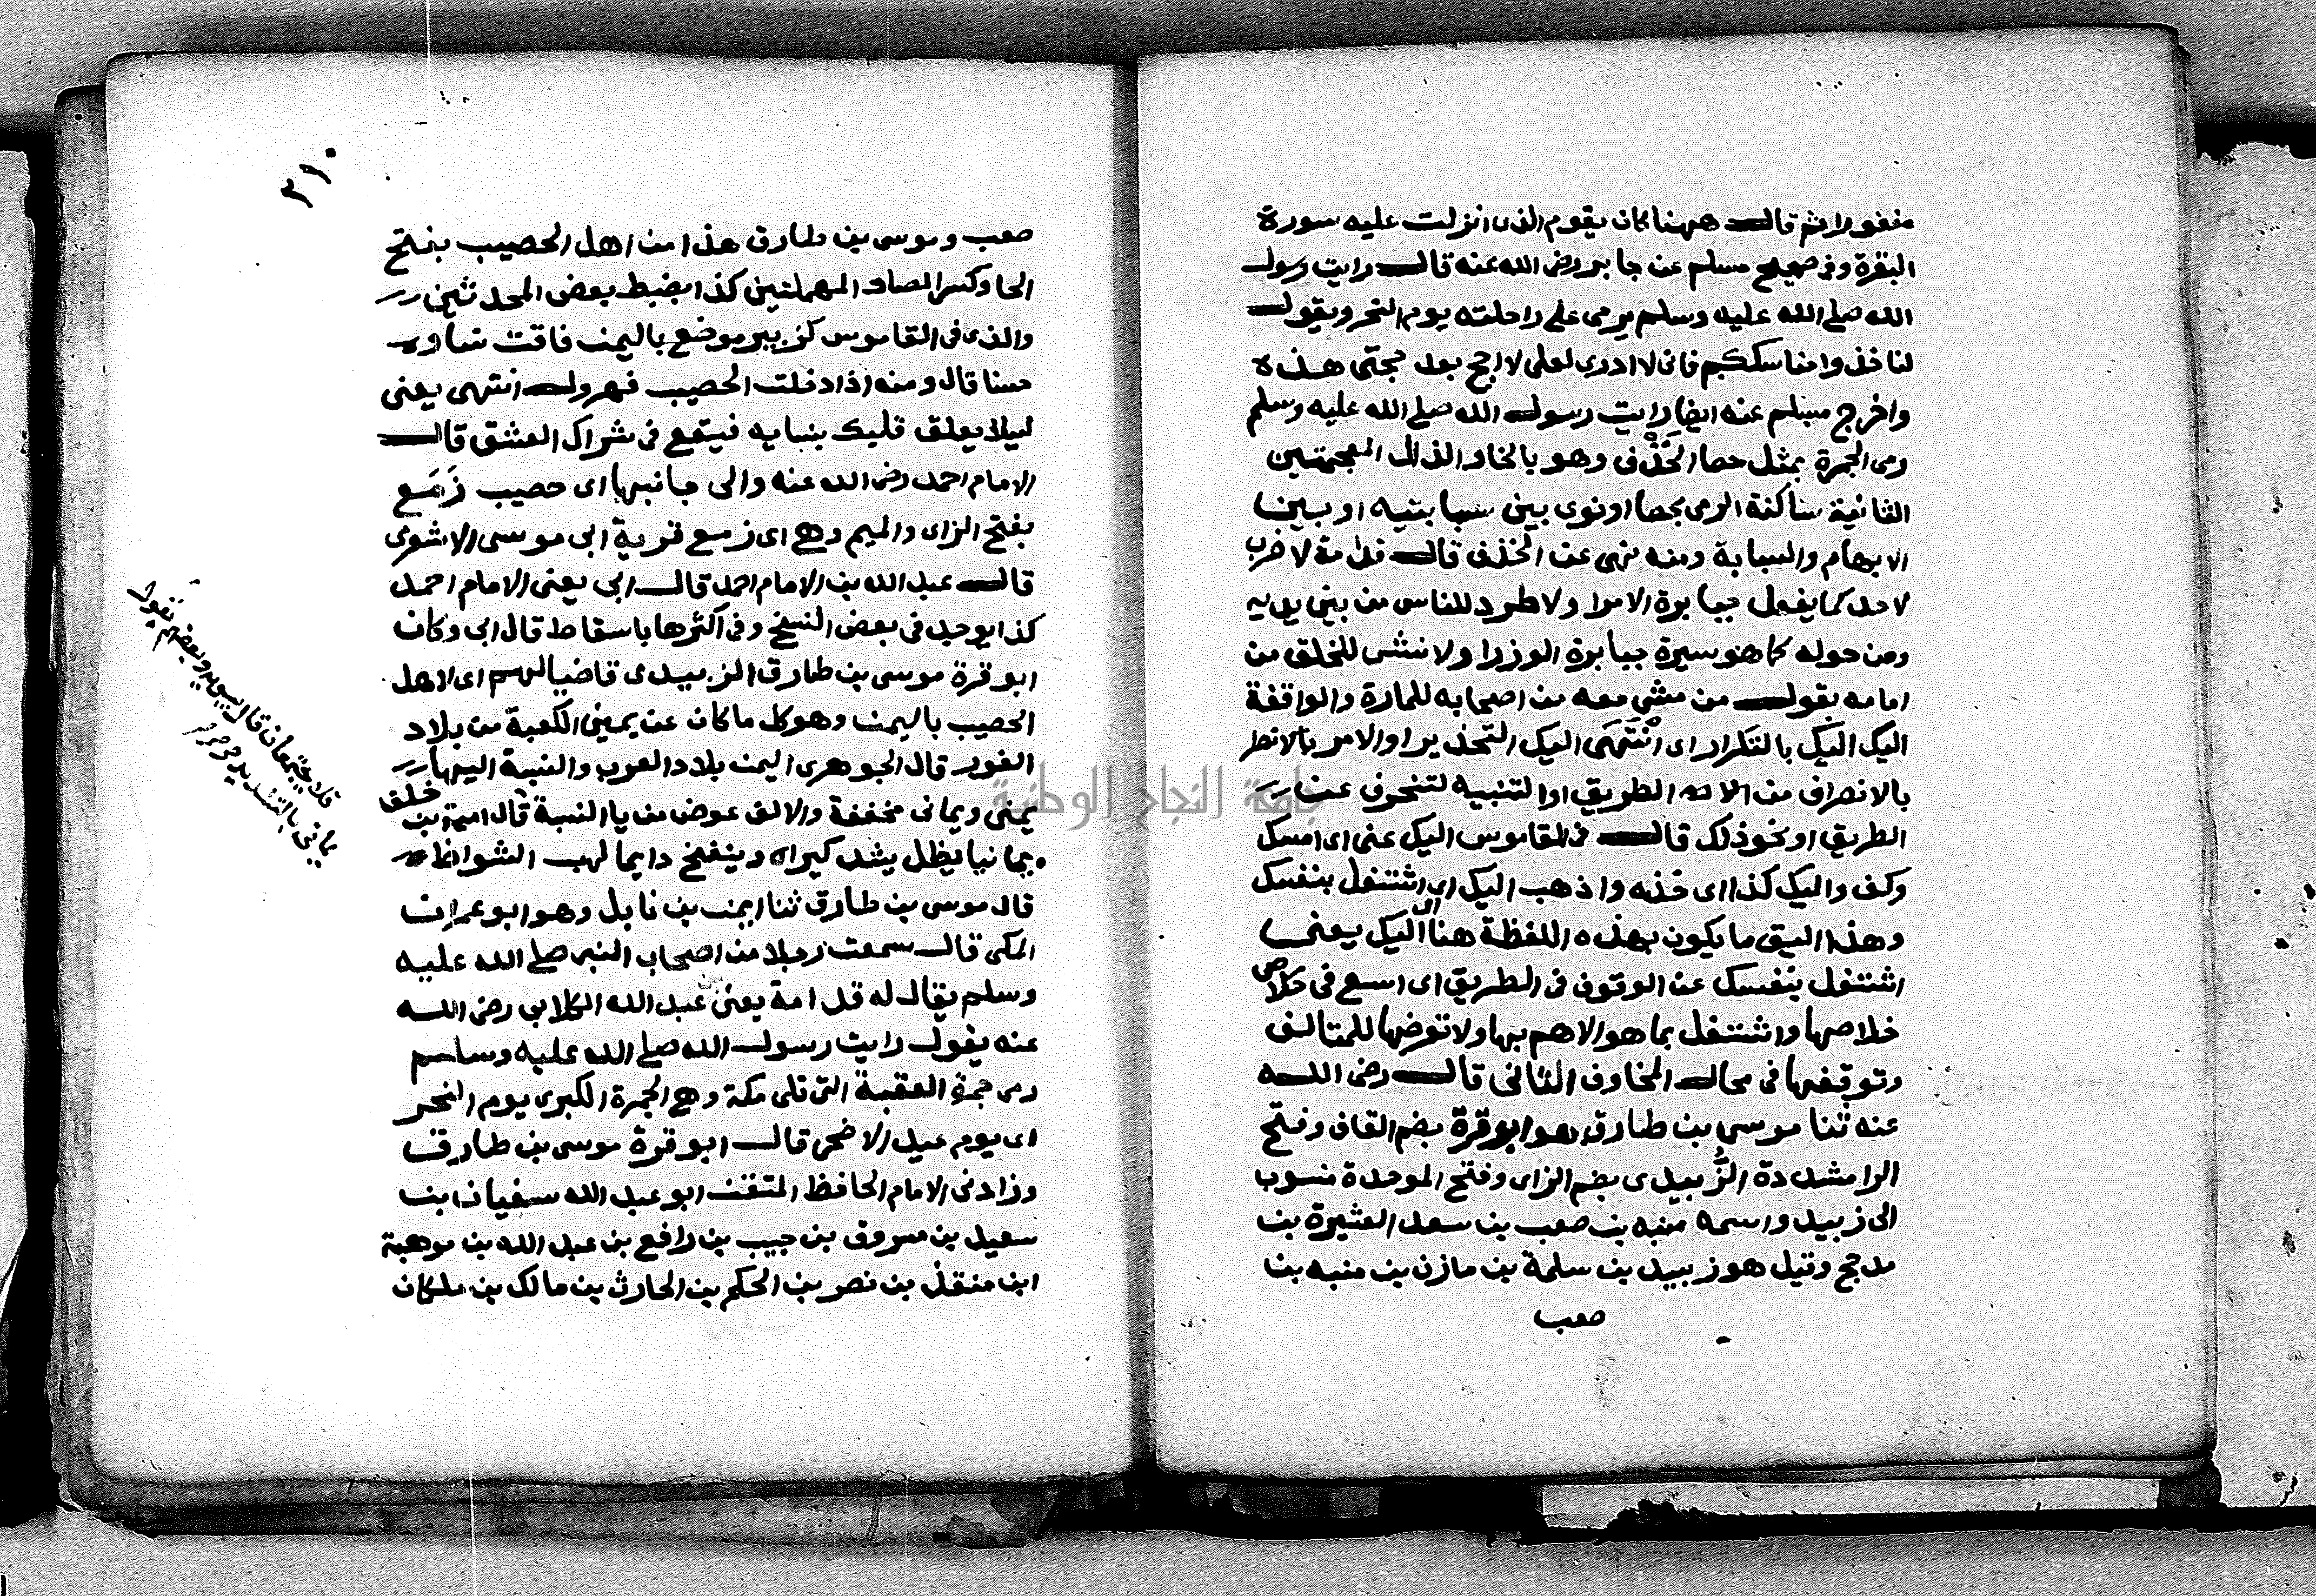 مغفورا ثم قال ههنا كان يقوم الذى انزلت عليه سورة
البقرة وفى صحيح مسلم عن جابر رضى الله عنه قال رايت رسول
الله صلى الله عليه وسلم يرمى على راحلته يوم النحر ويقول
لنا خذوا مناسككم فانى لا ادرى لعلى لا احج بعد حجتى هذه
واخرج مسلم عنه ايضا رايت رسول الله صلى الله عليه وسلم
رمى الجمرة بمثل حصا الخَذْف وهو بالخاء والذال المعجمتين
الثانية ساكنة الرمى بحصا او نوى بين سبابتيه او بين
الابهام والسبابة ومنه نهى عن الخذف قال قدامة لا ضرب
لاحد كما يفعل جبابرة الامرا ولا طرد للناس من بين يديه
ومن حوله كما هو سيرة جبابرة الوزرا ولا للخلق من
امامه بقول من مشى معه من اصحابه للمارة والواقفة
اليك اليك بالتكرار اى انْتَهى اليك التحذير او الامر
بالانصراف من الطريق او التنبيه لتنحرف عن
الطريق او نحو ذلك قال فى القاموس اليك عنى اى امسك
وكف واليك كذا اى خذه واذهب اليك اى اشتغل بنفسك
وهذا اليق ما يكون بهذه اللفظة هنا اى اليك يعنى
اشتغل بنفسك عن الوقوف فى الطريق اى اسع فى خلاص
خلاصها واشتغل بما هو الاهم بها ولا توضها للمتالف
وتوقفها فى محال المخاوف الثانى قال رضى الله
عنه ثنا موسى بن طارق هو ابو قرة بضم القاف وفتح
الرا مشددة الزُّبيدى بضم الزاى وفتح الموحدة منسوب
الى زبيد واسمه منبه بن صعب بن سعد العشيرة بن
مدحج وقيل هو زبيد بن سلمة بن مازن بن منبه بن
صعب
٢١٠
صعب وموسى بن طارق هذا من اهل الحصيب بفتح
الحا وكسر الصاد المهملتين كذا بضبط بعض المحدثين
والذى فى القاموس كزبير موضع باليمن فاقت نساوه
حسنا قال ومنه اذا دخلت الحصيب فهرول انتهى يعنى
ليلا يعلق قلبك بنسايه فيقع فى شراك العشق قال
الامام احمد رضى الله عنه والى جانبها اى حصيب زَمَع
بفتح الزاى والميم وهى اى زمع قرية ابى موسى الاشعرى
قال عبد الله بن الامام احمد قال ابى يعنى الامام احمد
كذا يوجد فى بعض النسخ وفى اكثرها باسقاط قال ابى وكان
ابو قرة موسى بن طارق الزبيدى قاضيا لهم اى لاهل
الحصيب باليمن وهو كل ما كان عن يمين الكعبة من بلاد
الغور قال الجوهرى اليمن بلاد العرب والنسبة اليها
يمنى ويمانى مخففة والالف عوض من يا النسبة قال امية بن خلف
يمانيا يظل يشد كيرا ه وينفخ دايما لهب الشواظ
قال موسى بن طارق ثنا ايمن بن نابل وهو ابو عمران
المكى قال سمعت رجلا من اصحاب النبى صلى الله عليه
وسلم يقال له قدامة يعنى بن عبد الله الكلابى رضى الله
عنه يقول رايت رسول الله صلى الله عليه وسلم
رمى جمرة العقبة التى تلى مكة وهى الجمرة الكبرى يوم النحر
اى يوم عيد الاضحى قال ابو قرة موسى بن طارق
وزادنى الامام الحافظ المتقن ابو عبد الله سفيان بن
سعيد بن مسروق بن حبيب بن رافع بن عبد الله بن موهبة
ابن منقذ بن نصر بن الحكم بن الحارث بن مالك بن ملكان
فلا يجتمعان قال سيبويه وبعضهم يقول
يمانى بالتشديد
جامعة النجاح الوطنية